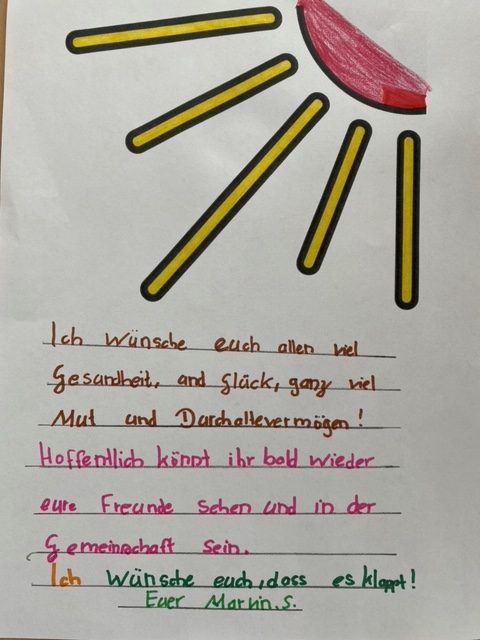 Ich wünsche euch allen viel
Gesundheit, and Glück, ganz viel
Mut und Durchaltevermögen!
Hoffentlich könnt ihr bald wieder
eure Freunde sehen und in der
Gemeinschaft sein.
Ich wünsche euch, dass es klappt!
Euer Marvin.S.